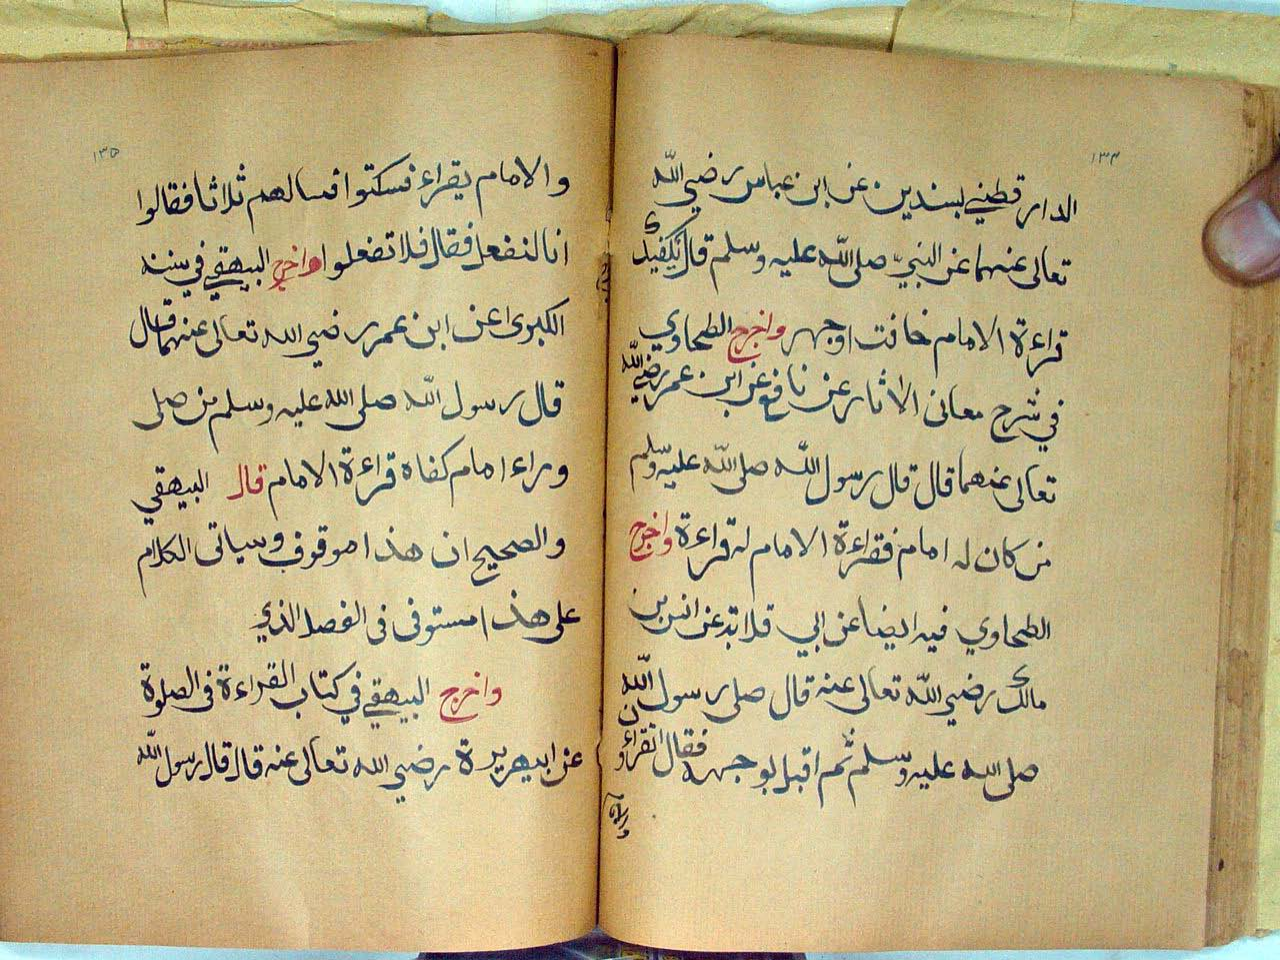 ١٣٤
الدار قطني بسندين عن ابن عباس رضي الله
تعالى عنهما عن النبي صلى الله عليه وسلم قال يكفيك
قراءة الامام خافت اوجهر واخرج الطحاوي
في شرح معانى الاثار عن نافع عن ابن عمر رضي الله
تعالى عنهما قال قال رسول الله صلى الله عليه وسلم
من كان له امام فقراءة الامام له قراءة واخرج
الطحاوي فيه ايضا عن ابي قلابة عن انس بن
مالك رضي الله تعالى عنه قال صلى رسول الله
صلى الله عليه وسلم ثم اقبل بوجهه فقال اتقرأون
والامام
١٣٥
والامام يقراء فسكتوا فسالهم ثلاثا فقالوا
انا لنفعل فقال فلا تفعلوا واخرج البيهقي في سننه
الكبرى عن ابن عمر رضي الله تعالى عنهما قال
قال رسول الله صلى الله عليه وسلم من صلى
وراء امام كفاه قراءة الامام قال البيهقي
والصحيح ان هذا موقوف وسياتى الكلام
على هذا مستوفى فى الفصل الذي
واخرج البيهقي في كتاب القراءة فى الصلوة
عن ابيهريرة رضي الله تعالى عنه قال قال رسول الله